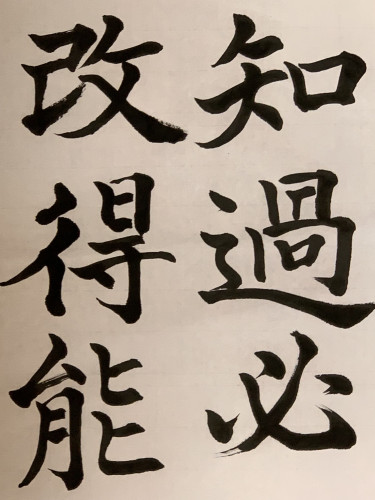 知過必
改得能